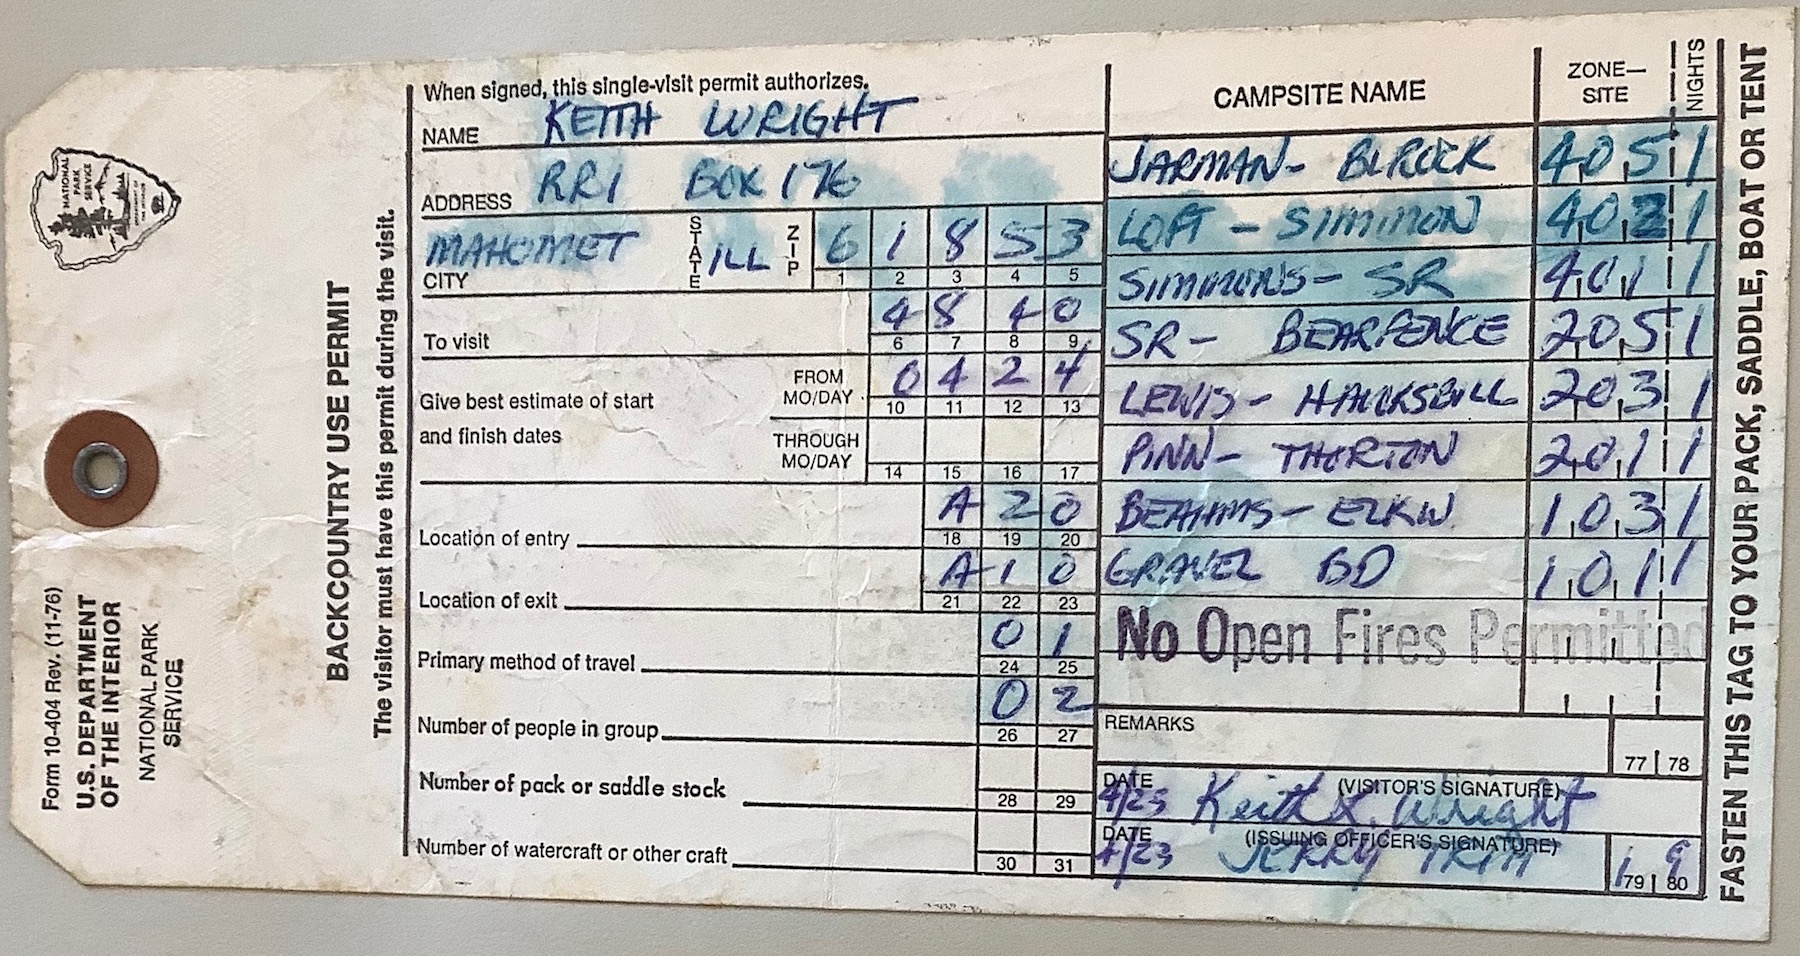 NATIONAL
PARK
SERVICE
Form 10-404 Rev. (11-76)
U.S. DEPARTMENT
OF THE INTERIOR
NATIONAL PARK
SERVICE
BACKCOUNTRY USE PERMIT
The visitor must have this permit during the visit.
When signed, this single-visit permit authorizes.
NAME KEITH WRIGHT
ADDRESS RR1 BOX 176
MAHOMET STATE ILL ZIP 6 1 8 5 3
CITY 1 2 3 4 5
4 8 4 0
To visit 6 7 8 9
Give best estimate of start
and finish dates
FROM
MO/DAY 0 4 2 4
10 11 12 13
THROUGH
MO/DAY
14 15 16 17
A 2 0
Location of entry 18 19 20
A 1 0
Location of exit 21 22 23
0 1
Primary method of travel 24 25
0 2
Number of people in group 26 27
Number of pack or saddle stock 28 29
Number of watercraft or other craft 30 31
CAMPSITE NAME ZONE—
SITE NIGHTS
JARMAN- BLROCK 405 1
LOFT - SIMMON 402 1
SIMMONS- SR 401 1
SR- BEARFENCE 205 1
LEWIS- HAWKSBILL 203 1
PINN- THORTON 201 1
BEAHMS- ELKW 103 1
GRAVEL 101 1
No Open Fires Permitted
REMARKS
77 78
DATE (VISITOR'S SIGNATURE)
4/25 Keith Wright
DATE (ISSUING OFFICER'S SIGNATURE)
4/23 JERRY 1 9
79 80
FASTEN THIS TAG TO YOUR PACK, SADDLE, BOAT OR TENT